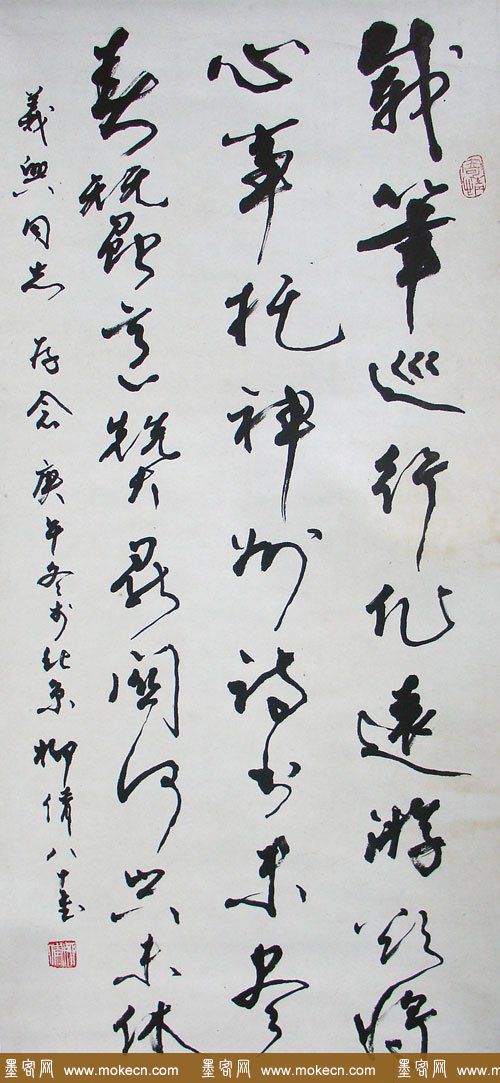 載筆巡行作遠游欲將
心事托神州詩書未盡
春蠶意關河興未休
義興同志 存念 庚午冬於北京 柳倩八十書
墨客网 www.mokecn.com 墨客网 www.mokecn.com 墨客网 www.mokecn.com